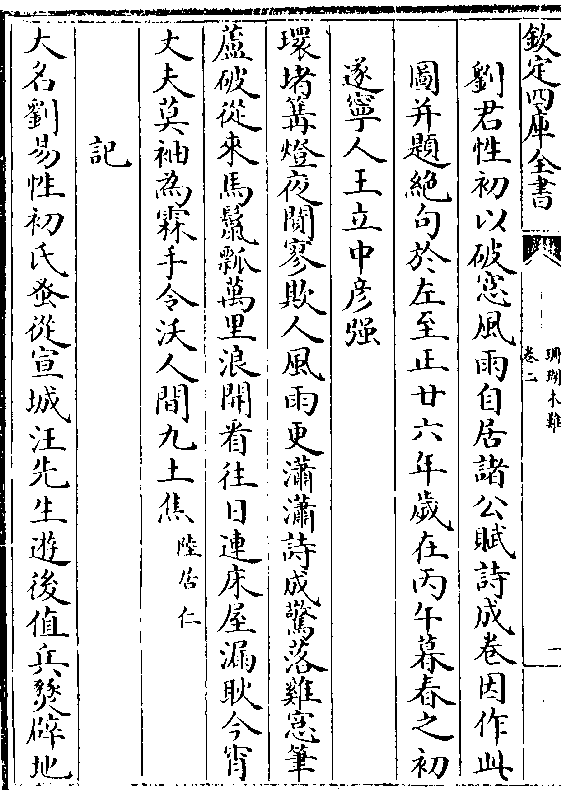 欽定四庫全書
珊瑚木難
卷二
一
劉君性初以破窓風雨自居諸公賦詩成卷因作此
圖并題絶句於左至正廿六年歲在丙午暮春之初
遂寧人王立中彦强
環堵篝燈夜闃寥欺人風雨更瀟瀟詩成驚落雞窓筆
蘆破從來馬鬛瓢萬里浪開看往日連床屋漏耿今宵
丈夫莫袖為霖手令沃人間九土焦陸居仁
記
大名劉易性初氏蚤從宣城汪先生遊後值兵燹辟地